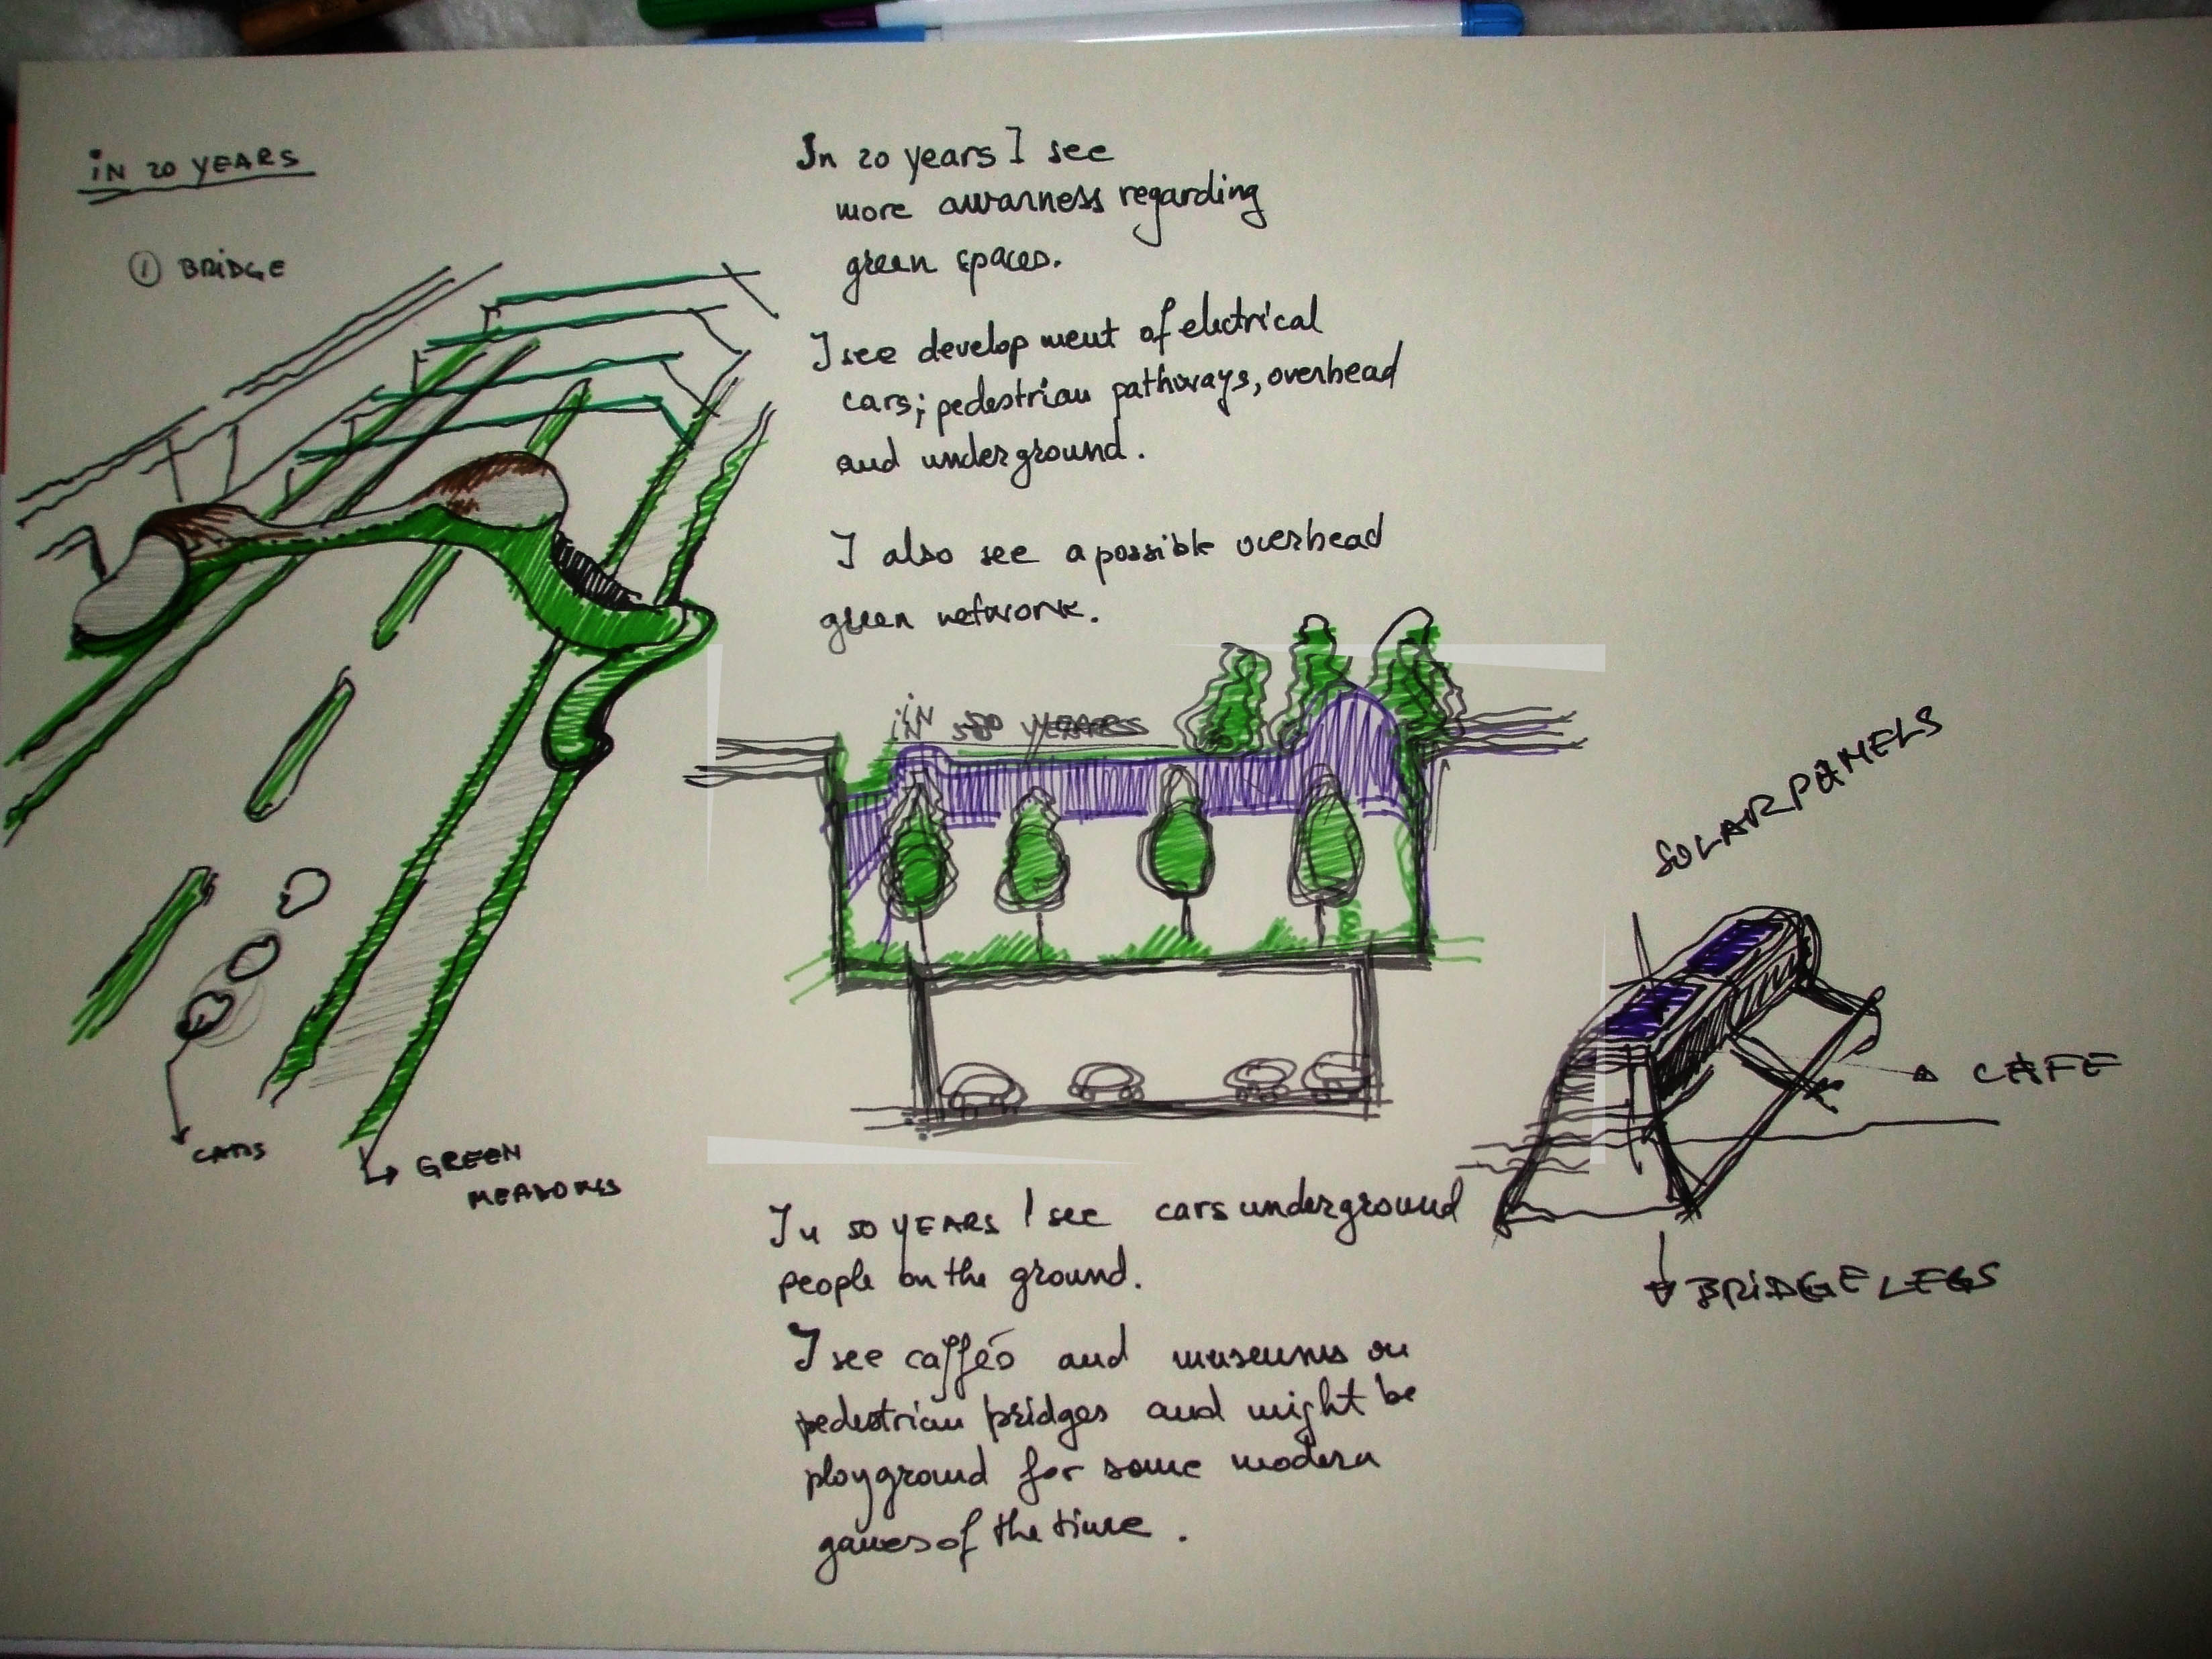 iN 20 YEARS
① BRiDGE
In 20 years I see
more awarness regarding
green spaces.
I see development of electrical
cars; pedestrian pathways, overhead
and underground.
I also see a possible overhead
green network.
iN 50 YEARS
SOLAR PANELS
CAFE
BRiDGE LEGS
CARS
GREEN
MEADOWS
In 50 YEARS I see cars underground
people on the ground.
I see caffés and museums on
pedestrian bridges and might be
playground for some modern
games of the time.